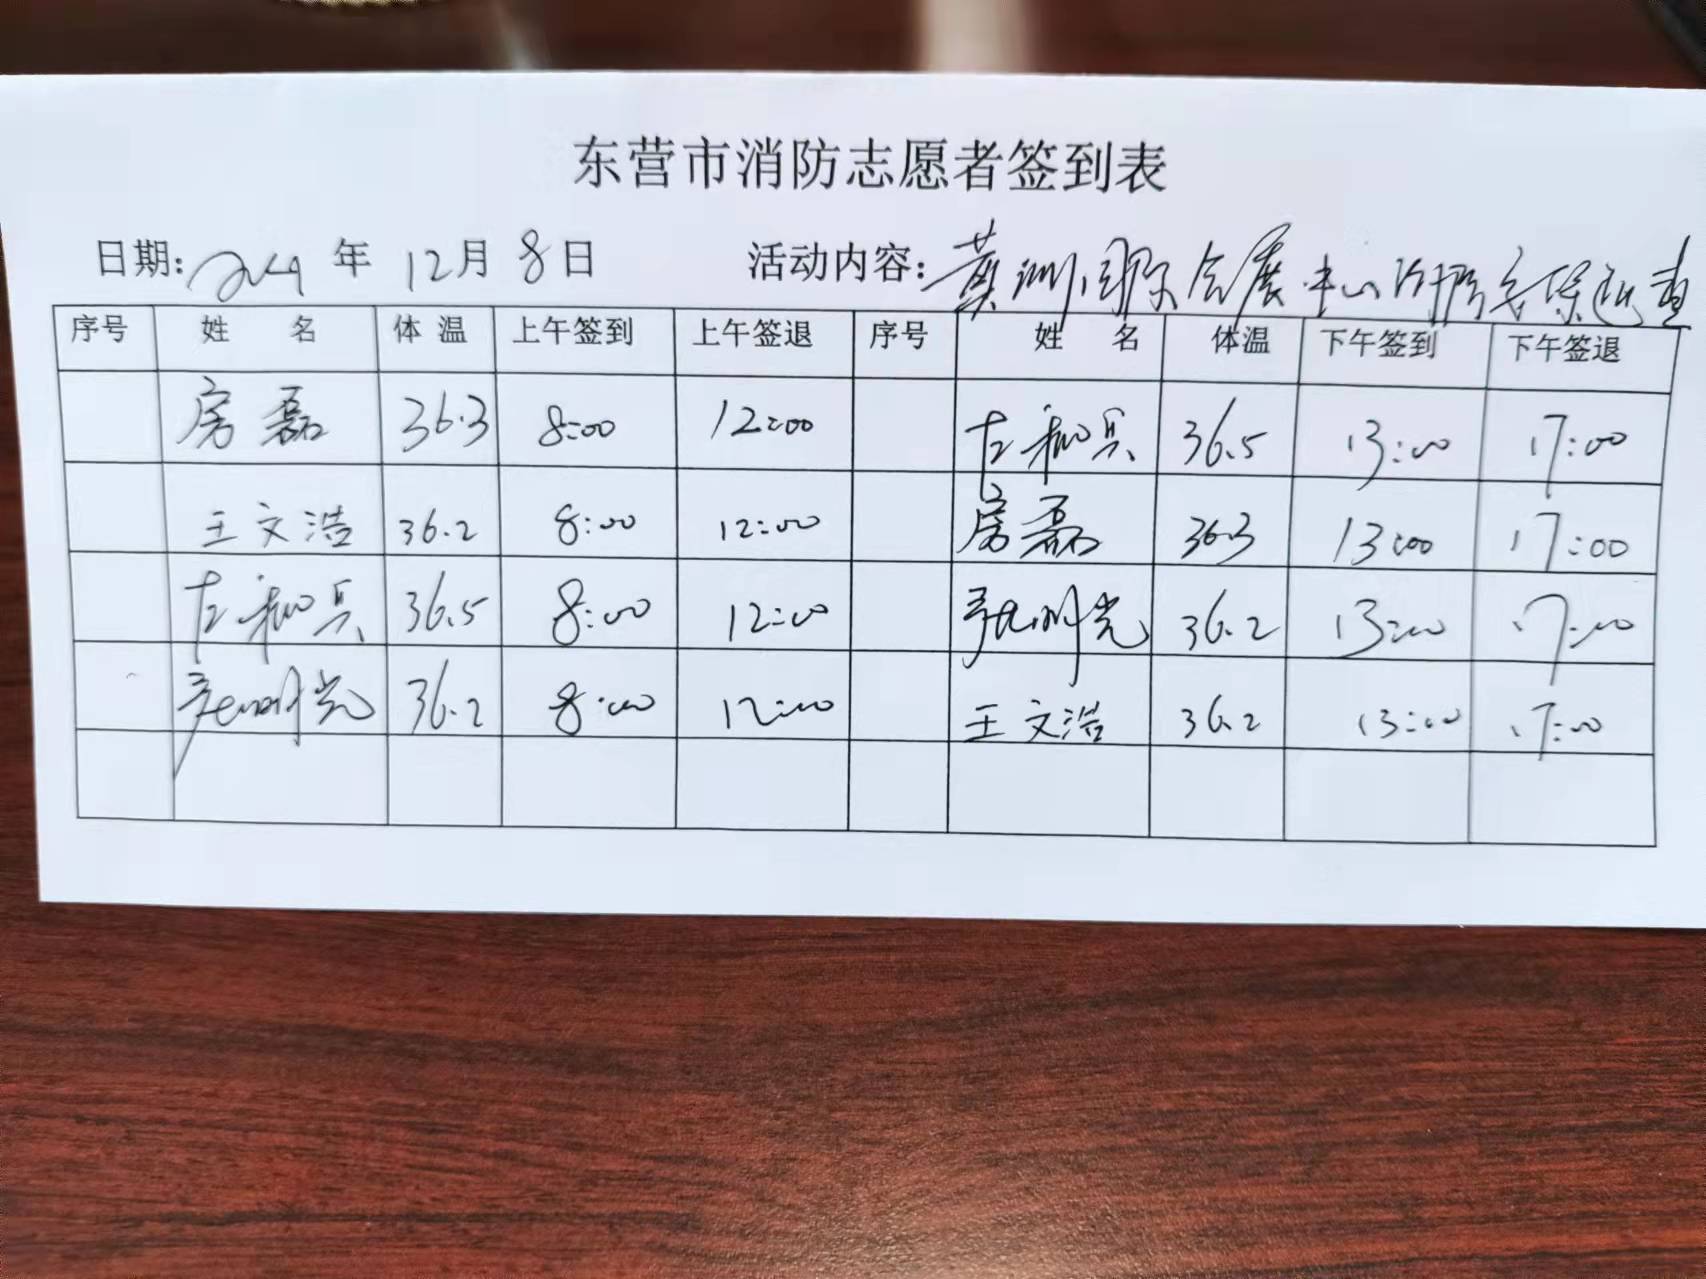 东营市消防志愿者签到表
日期: 年 12月 8日 活动内容: 黄 国际会展中心 消防安保巡查
序号 姓 名 体 温 上午签到 上午签退 序号 姓 名 体温 下午签到 下午签退
房磊 36.3 8:00 12:00 左 兵 36.5 13:00 17:00
王文浩 36.2 8:00 12:00 房磊 36.3 13:00 17:00
左 兵 36.5 8:00 12:00 光 36.2 13:00 17:00
光 36.2 8:00 12:00 王文浩 36.2 13:00 17:00